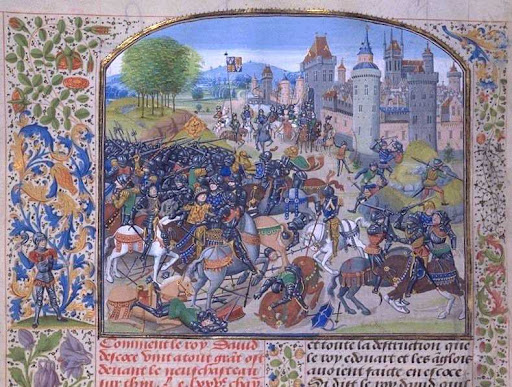 Comment le roy Dauid
descoce vint atout grāt ost
deuant le neufchastel
sur thin
et toute la destruction que
le roy edouart et les āglois
auoient faite en escoce
le roy